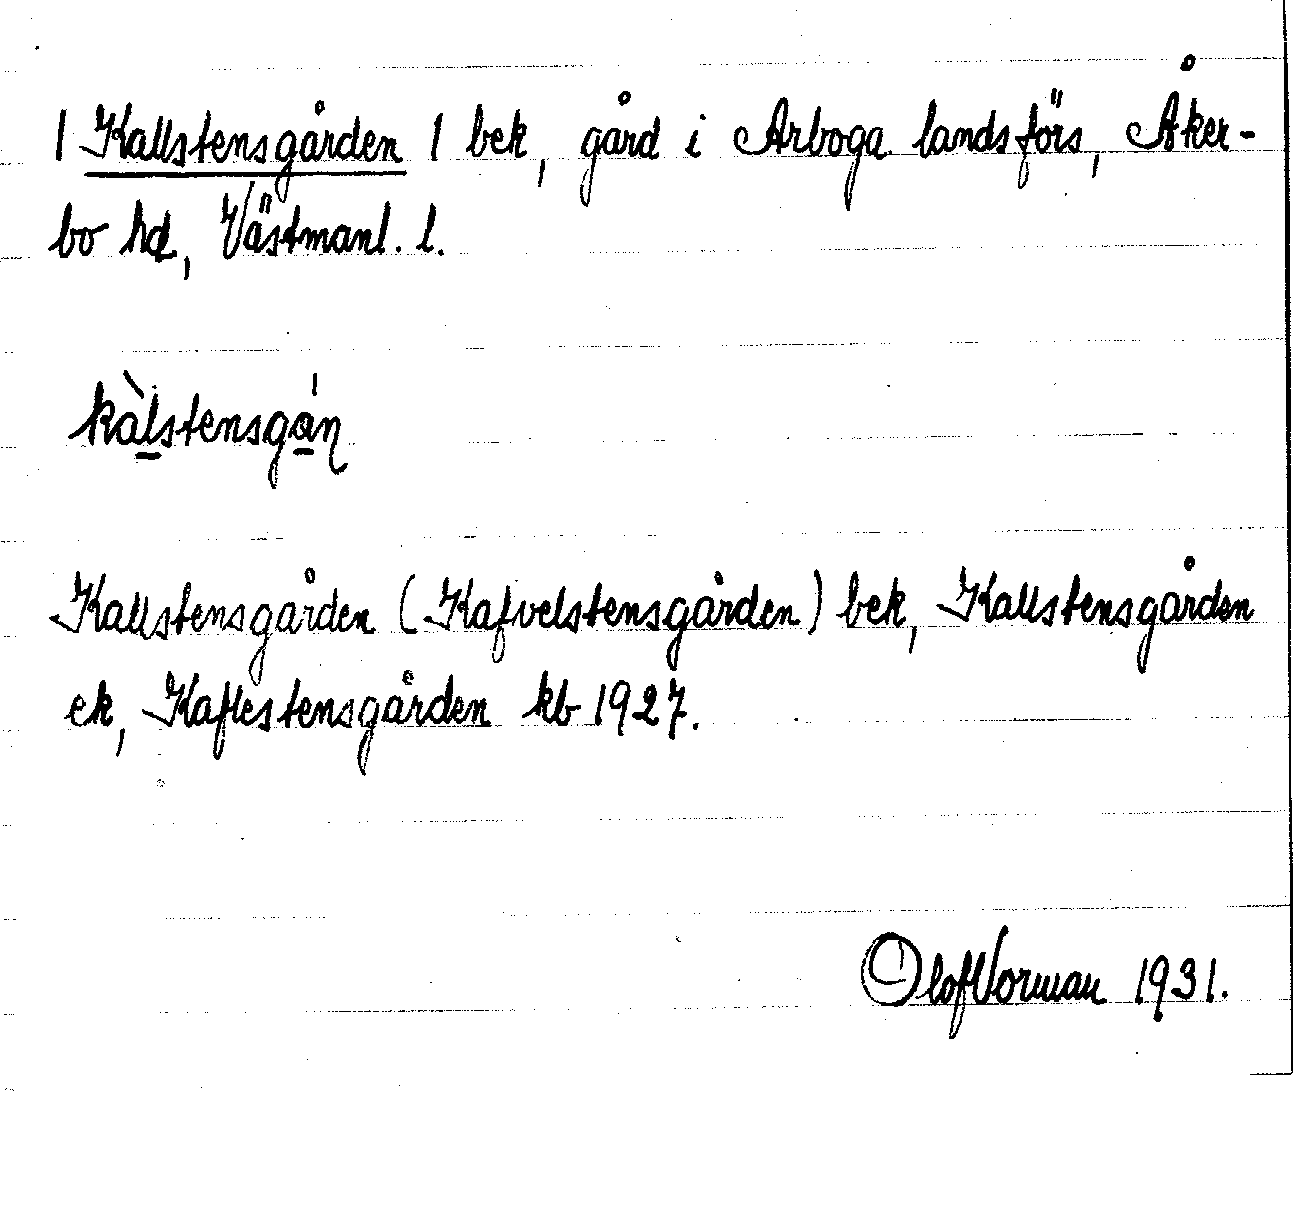 | Kallstensgården | bek, gård i Arboga landsförs, Åker-
bo hd, Västmanl. l.
kàl̲stensgá̲n
Kallstensgården (Kafvelstensgården) bek, Kallstensgården
ek, Kaflestensgården kb 1927.
Olof Norman 1931.